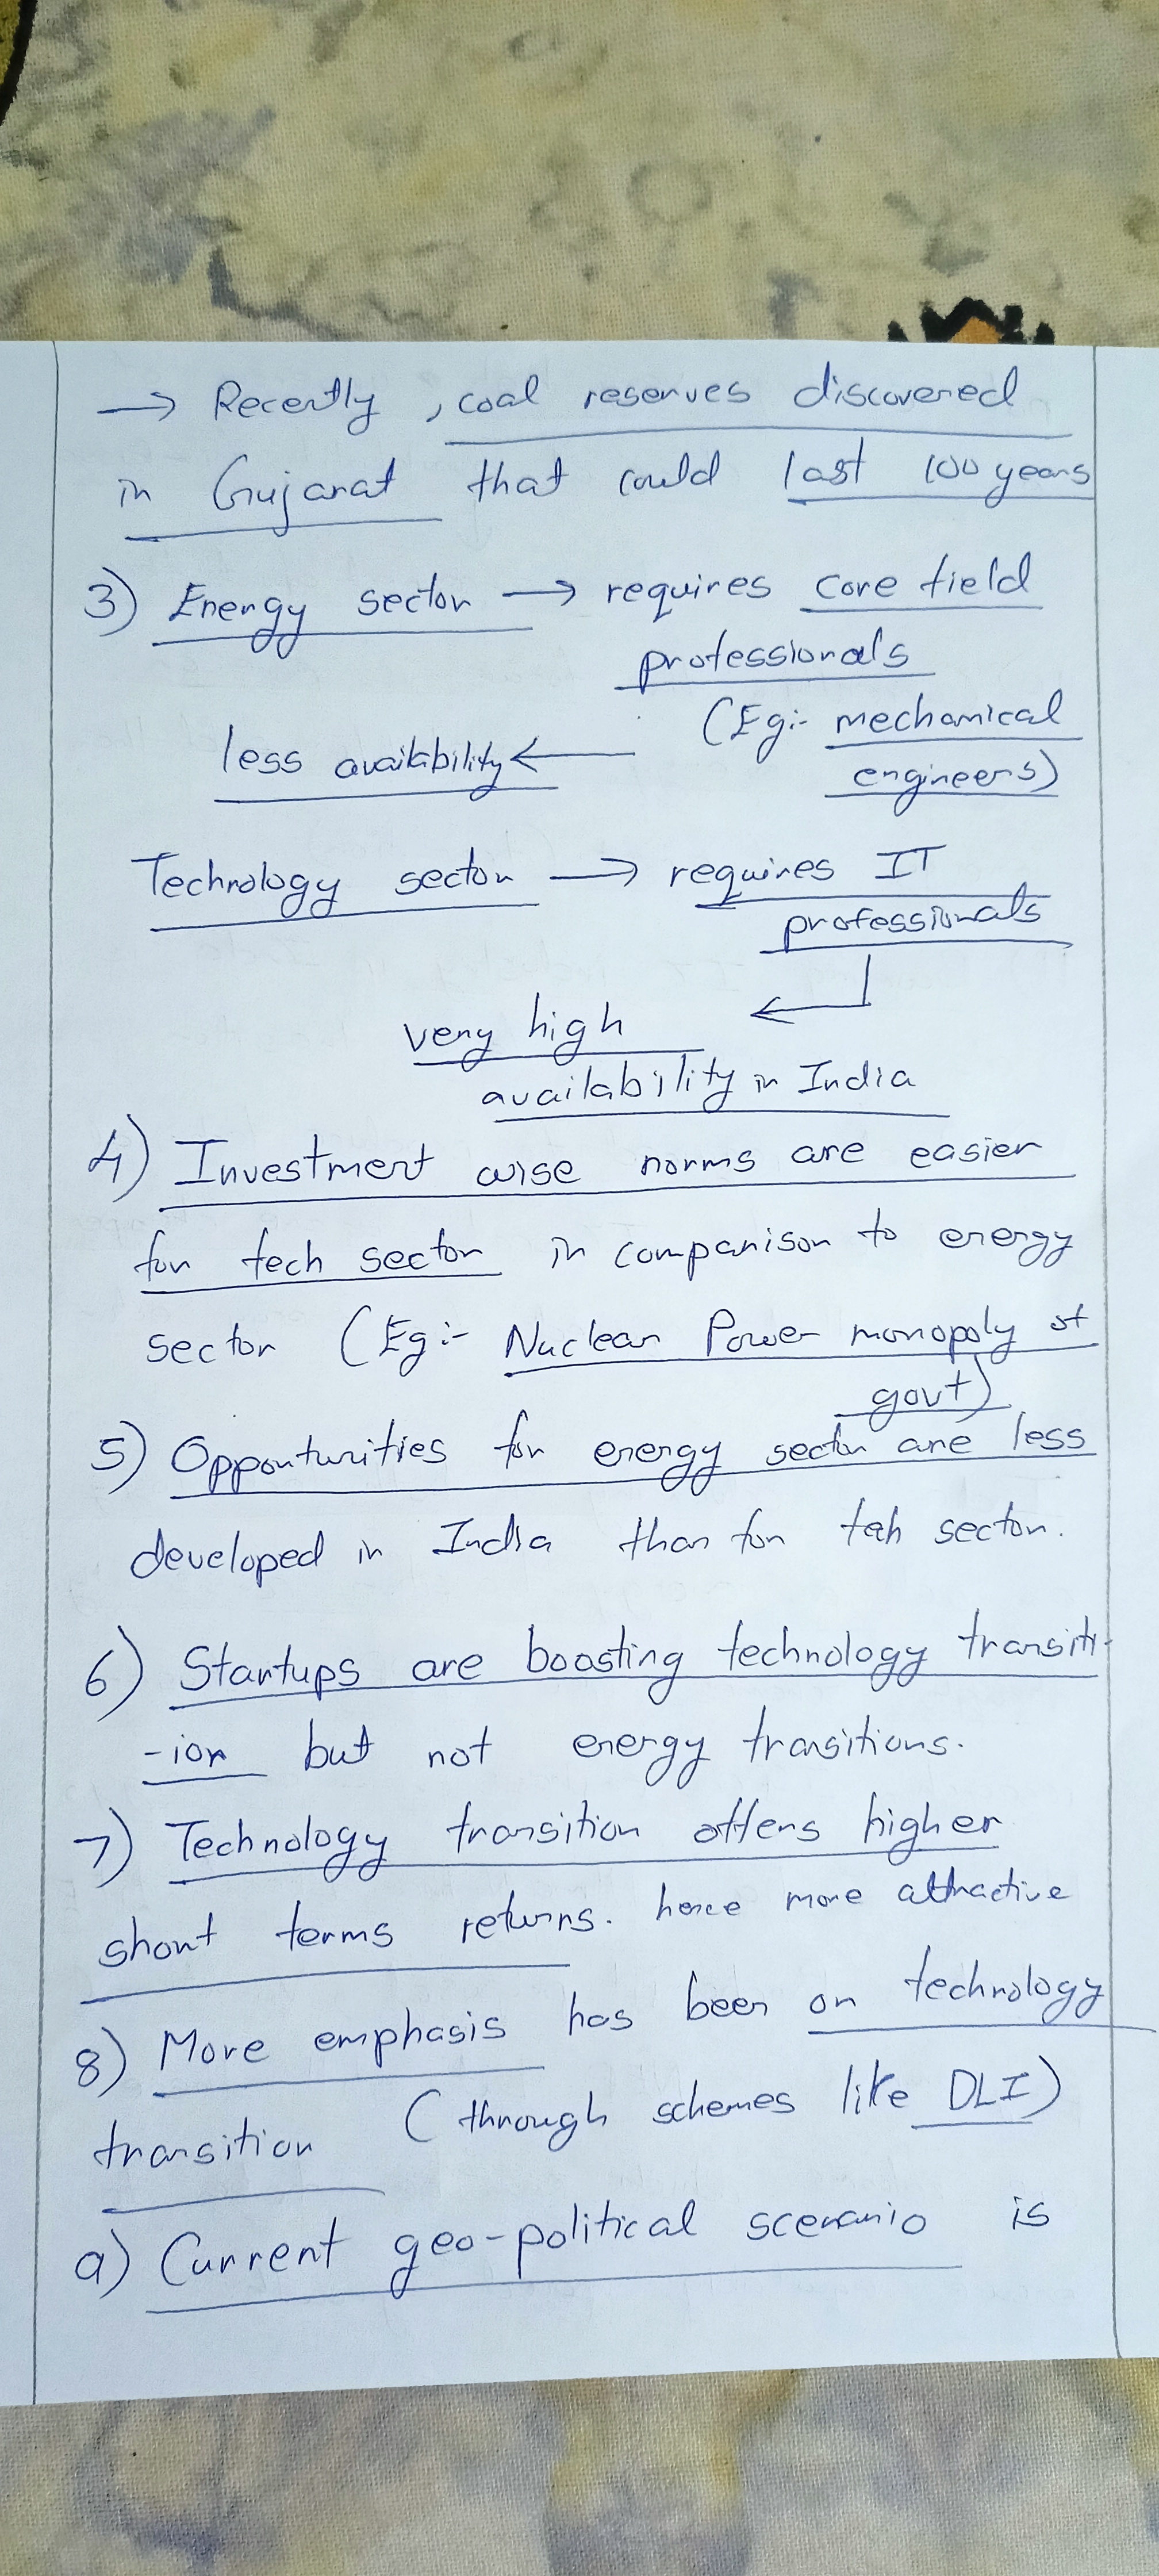 → Recently, coal reserves discovered
in Gujarat that could last 100 years
3) Energy sector → requires core field
professionals
(Eg:- mechanical
less availability ←
engineers)
Technology sector → requires IT
professionals
very high ←
availability in India
4) Investment wise norms are easier
for tech sector in comparison to energy
sector (Eg:- Nuclear Power monopoly of
govt)
5) Opportunities for energy sector are less
developed in India than for teh sector.
6) Startups are boosting technology transiti-
-ion but not energy trasitions.
7) Technology transition offers higher
short terms returns. hence more attractive
8) More emphasis has been on technology
transition (through schemes like DLI)
9) Current geo-political scenario is